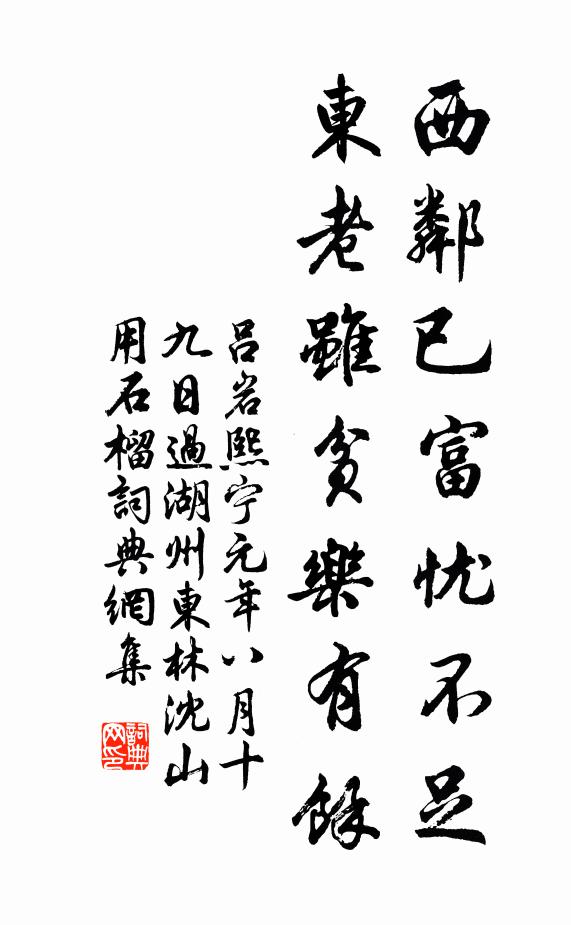 西鄰已富忧不足
東老雖贫樂有餘
吕岩熙宁元年八月十
九日過湖州東林沈山
用石榴詞典網集
詞典网印